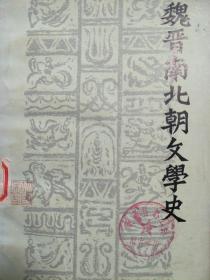 魏晋南北朝文學史